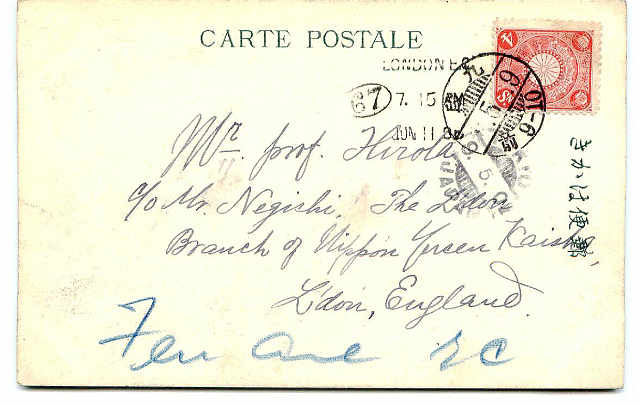 CARTE POSTALE
LONDON E.C
7. 15
JUN 11 06
67
7
Mr. prof. Hirota
c/o Mr. Negishi, The L'don
Branch of Nippon Yusen Kaisha,
L'don, England.
Fen Ave EC
きかは便郵